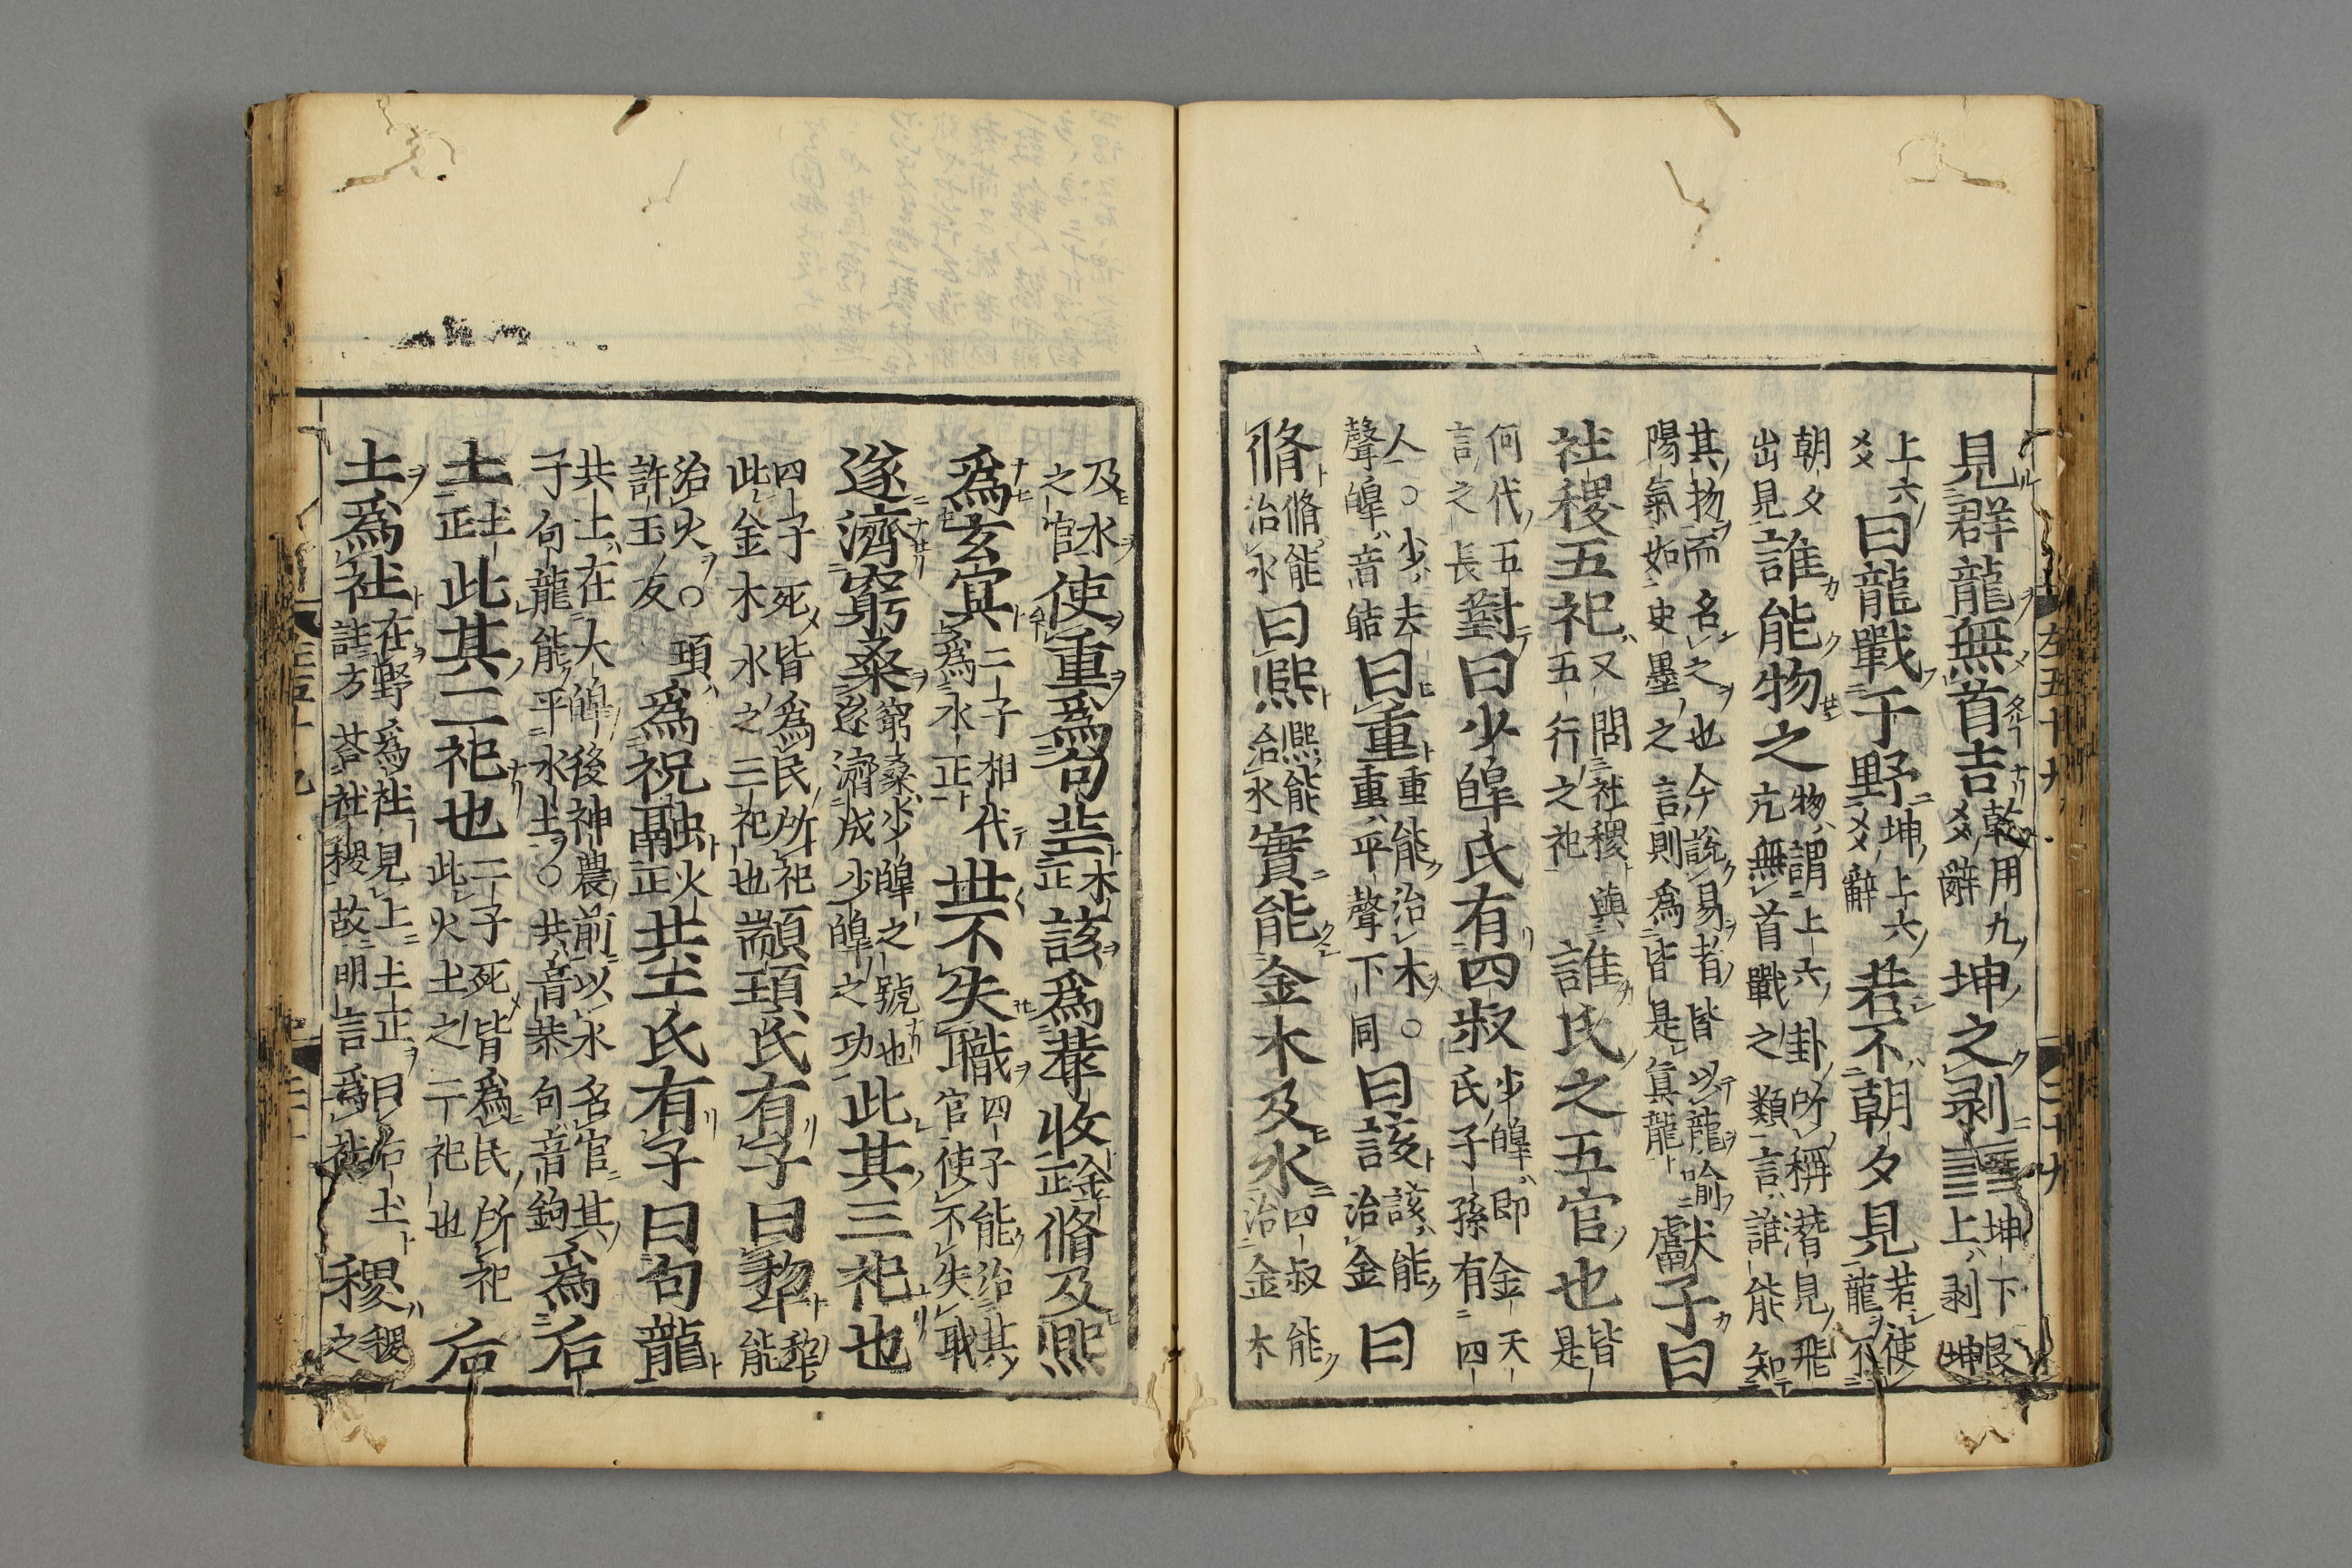 左五十九 二十九
見群龍無首吉乾用九爻辭坤之剥䷖坤下艮上剥坤
上六爻曰龍戰于野坤上六爻辭若不朝夕見若使龍不
朝夕出見誰能物之物謂上六卦所稱潛見飛亢無首戰之類言誰能知
其物而名之也今說易者皆以龍喻陽氣如史墨之言則爲皆是眞龍獻子曰
社稷五祀又問社稷與五行之祀誰氏之五官也皆是
何代五言之長對曰少皥氏有四叔少皥即金天氏子孫有四
人○少去聲皥音皓曰重重能治木○重平聲下同曰該該能治金曰
脩脩能治水曰熈熈能治水實能金木及水四叔能治金木
及水之官使重爲句芒木正該爲蓐收金正脩及熈
爲玄冥二子相代爲水正世不失職四子能治其官使不失職
遂濟窮桑窮桑少皥之號也遂濟成少皥之功此其三祀也
四子死皆爲民所祀此金木水之三祀也顓頊氏有子曰犂犂能
治火○頊許玉友爲祝融火正共工氏有子曰句龍
共工在大皥後神農前以水名官其子句龍能平水土○共音恭句音鉤爲后
土土正此其二祀也二子死皆爲民所祀此火土之二祀也后
土爲社在野爲社見上土正曰后土註方荅社稷故明言爲社稷稷之